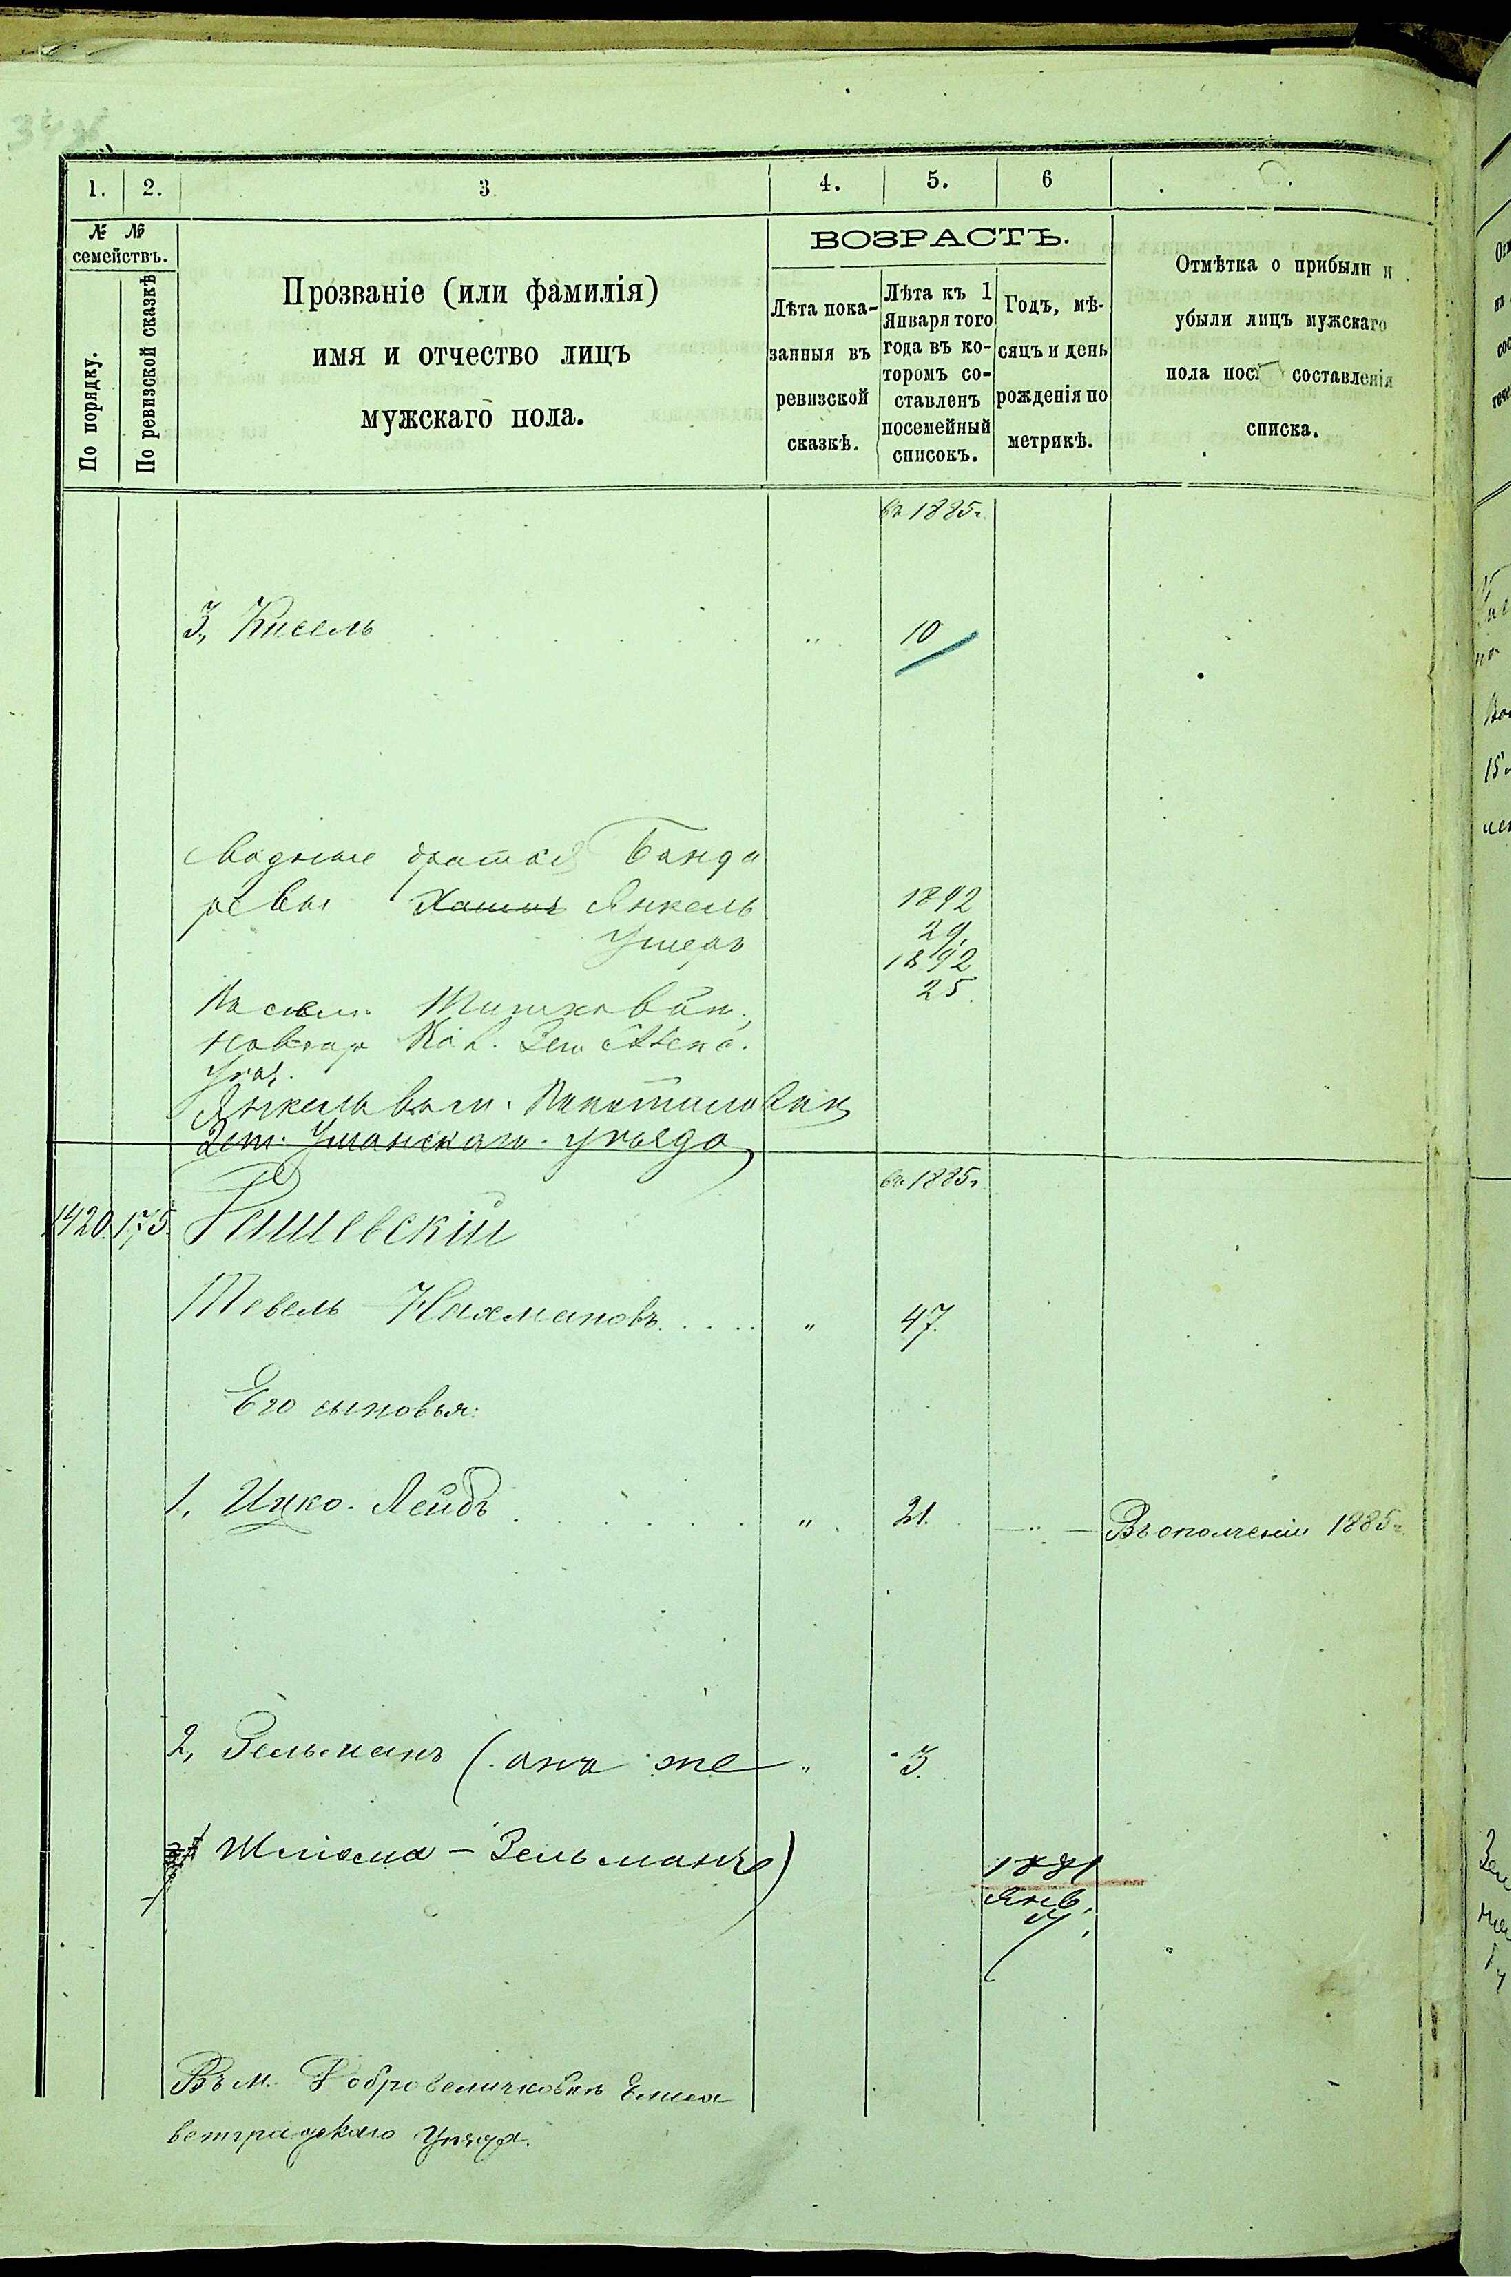 1. 2. 3 4. 5. 6
№ № семействъ.
По порядку.
По ревизской сказкѣ
Прозваніе (или фамилія)
имя и отчество лицъ
мужскаго пола.
ВОЗРАСТЪ.
Лѣта пока-
занныя въ
ревизской
сказкѣ.
Лѣта къ 1
Января того
года въ ко-
торомъ со-
ставленъ
посемейный
списокъ.
Годъ, мѣ-
сяцъ и день
рожденія по
метрикѣ.
Отмѣтка о прибыли и
убыли лицъ мужскаго
пола посл составленія
списка.
въ 1885г.
3, Кисель " 10
Сводные братья Банда
ревы Янкель 1892
29
Ушеръ 1892
25
Янкель
Уманскаго уѣзда
въ 1885г.
1420. 175. Рашевскій
Тевель Нахмановъ . . . . " 47.
Его сыновья:
1, Ицко-Лейбъ " 21. — " — Въ ополченіи 1885г.
2, Зельманъ (онъ же " 3.
Шліома - Зельманъ)
1881
Янв.
Въ м. Добровеличковкѣ Елиса
ветградскаго уѣзда.